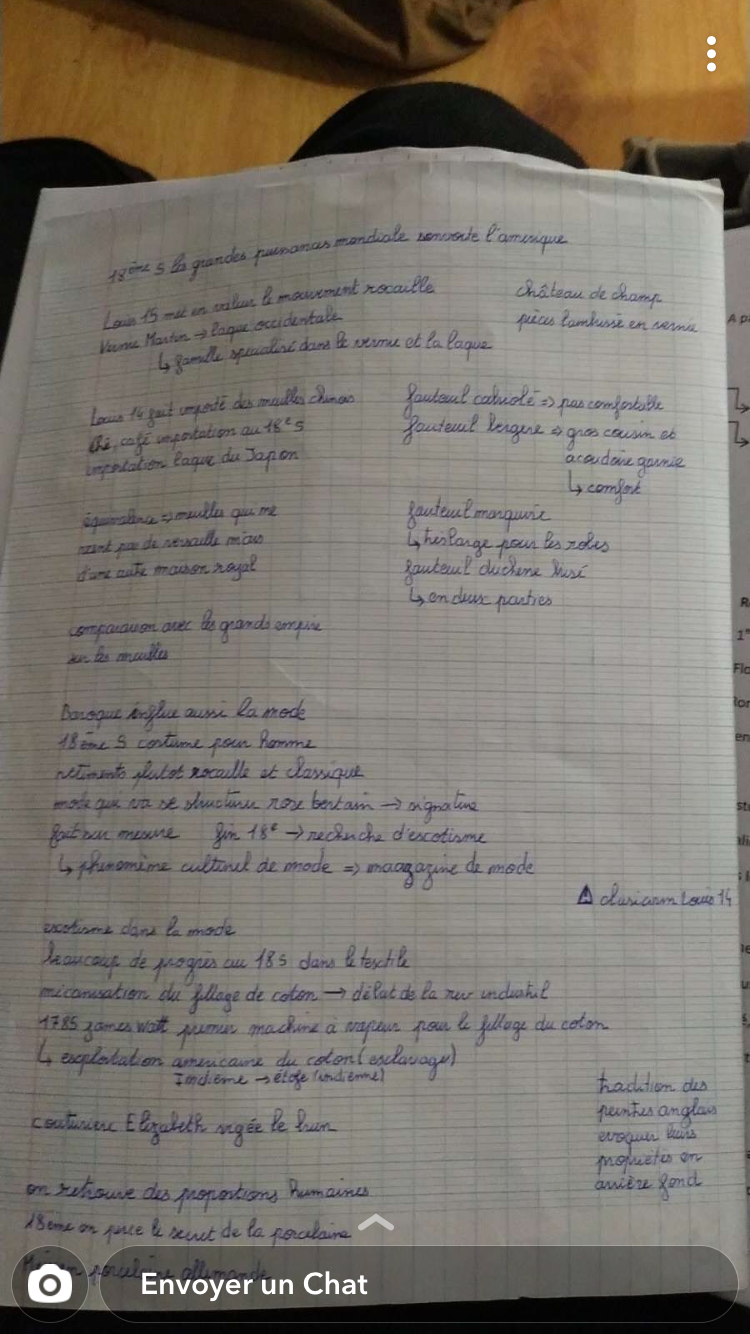 18ème S les grandes puissances mondiale l'amerique
Louis 15 met en valeur le mouvement rocaille
Vernie Martin → laque occidentale
↳ famille specialisé dans le vernie et la laque
château de champ
pièces lambrissé en vernie
Louis 14 fait importé des meubles chinois
thé, café importation au 18e S
importation laque du Japon
fauteuil cabriolé => pas comfortable
fauteuil bergere => gros cousin et
acoudoire garnie
↳ comfort
équivalence => meubles qui ne
vient pas de versaille mais
d'une autre maison royal
fauteuil marquise
↳ très large pour les robes
fauteuil duchene brisé
↳ en deux parties
comparaison avec les grands empire
sur les meubles
Baroque influe aussi la mode
18ème S costume pour homme
vetiments plutot rocaille et classique
mode qui va se structurer rose bertain → signature
fait sur mesure fin 18e → recherche d'escotisme
↳ phenomème culturel de mode => magazine de mode
⚠ Louis 14
escotisme dans la mode
beaucoup de progrès au 18 S dans le textile
micanisation du fillage de coton → début de la rev industriel
1785 james Watt premier machine à vapeur pour le fillage du coton
↳ exploitation americaine du coton (esclavage)
Indième → étofe (indiènne)
couturiere Elizabeth vigée le brun
tradition des
peintres anglais
evoquer leurs
propriétés en
arrière fond
on retrouve des proportions humaines
18ème on perce le secret de la porcelaine
porcelaine allemande
Envoyer un Chat